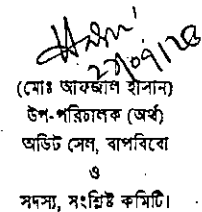 ২৭/০৭/২৪
(মোঃ আফজাল হাসান)
উপ-পরিচালক (অর্থ)
অডিট সেল, বাপবিবো
ও
সদস্য, সংশ্লিষ্ট কমিটি।